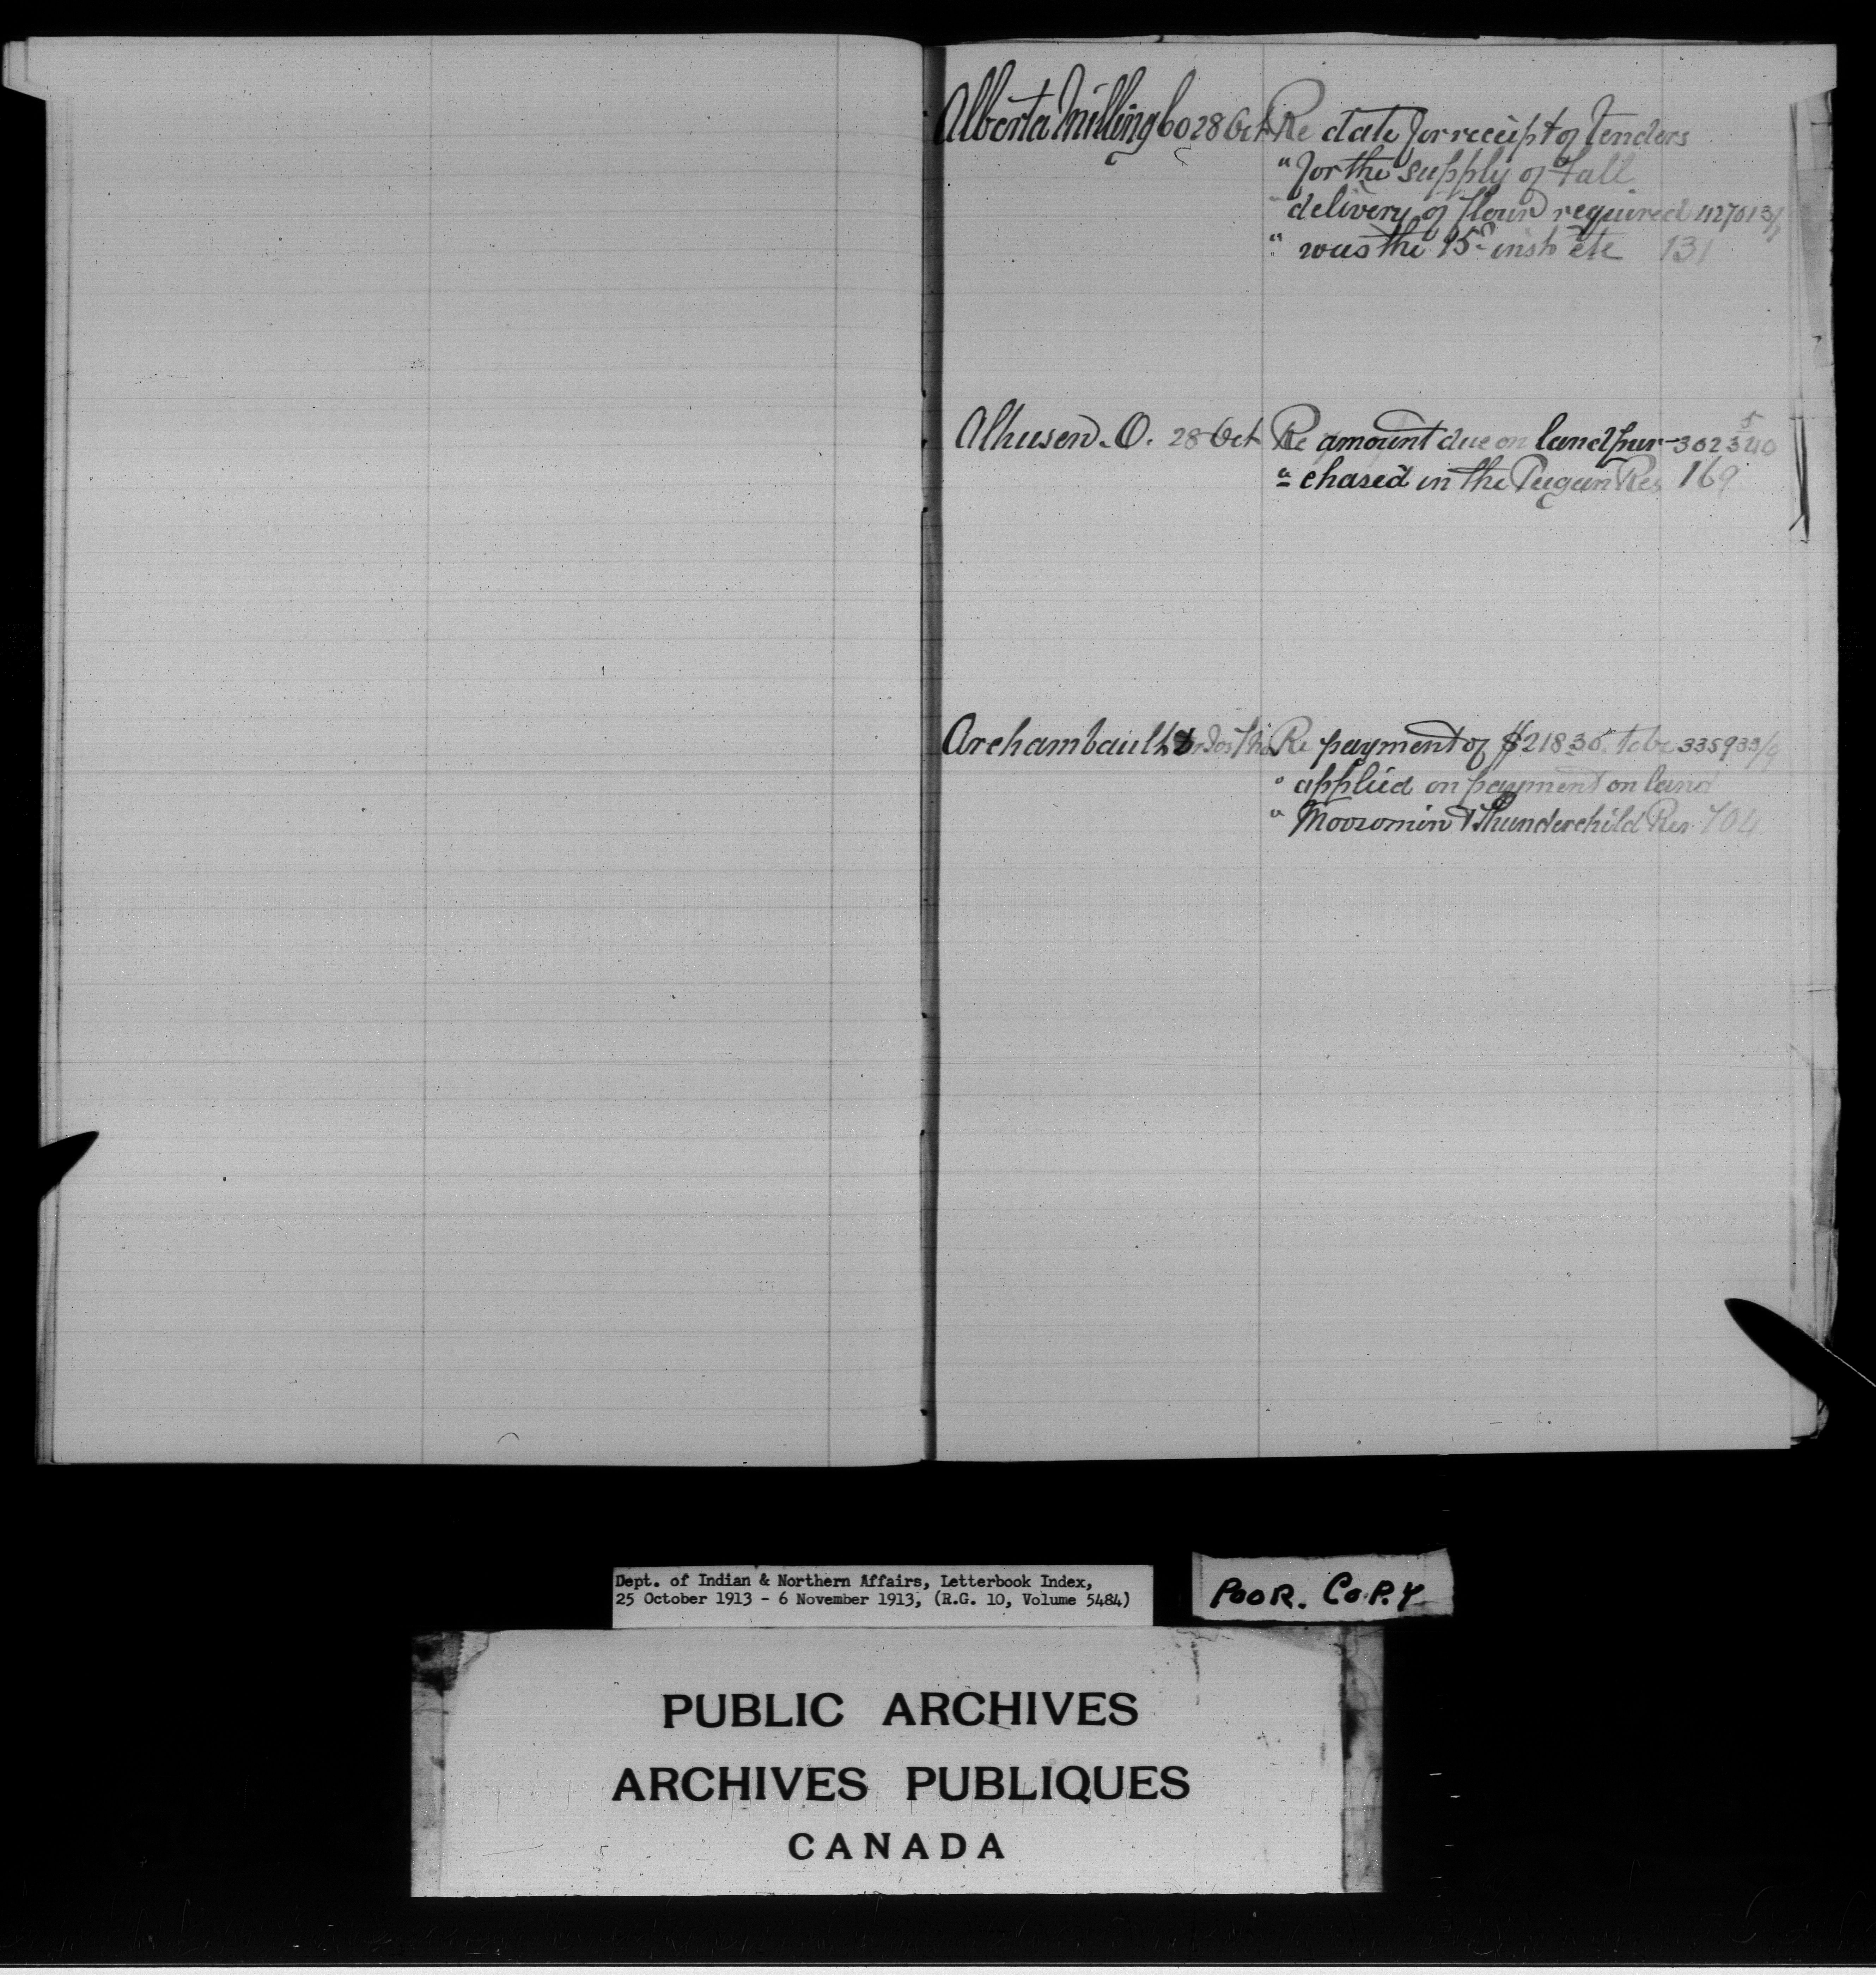 Alberta Milling Co 28 Oct Re date for receipt of Tenders
" for the supply of Fall
" delivery of flour required 427013/1
" was the 15th inst etc 131
Alhusen. O. 28 Oct Re amount due on land pur- 302340 5
" chased in the Peigan Res 169
Archambault Re payment of $218 30 to be 335933/9
" applied on payment on land
" Moosomin & Thunderchild Res 704
Dept. of Indian & Northern Affairs, Letterbook Index,
25 October 1913 - 6 November 1913, (R.G. 10, Volume 5484)
POOR. COPY
PUBLIC ARCHIVES
ARCHIVES PUBLIQUES
CANADA